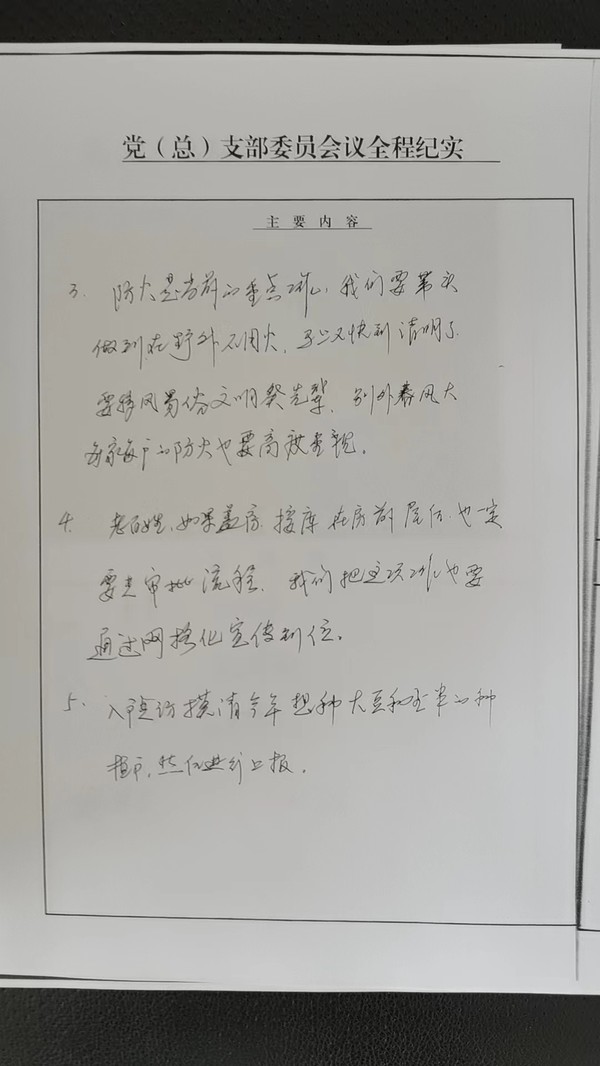 党（总）支部委员会议全程纪实
主要内容
3. 防火是当前的重点工作，我们要带头
做到在野外不用火，马上又快到清明了
要移风易俗文明祭先辈，别外春风大
每家每户的防火也要高度重视。
4. 老百姓，如果盖房，接库在房前屋后，也一定
要走审批流程，我们把这项工作也要
通过网格化宣传到位。
5. 入户走访摸清今年想种大豆和玉米的种
植户，然后进行上报。